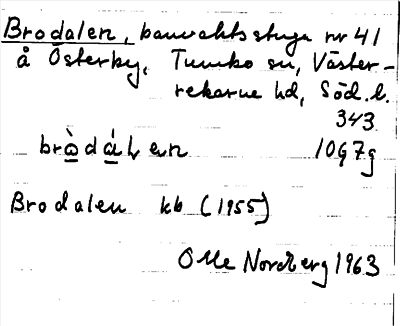 Brodalen, banvaktsstuga nr 41
å Österby, Tumbo sn, Väster-
rekarne hd, Söd. l.
343
bròdálen 10G7g
Brodalen kb (1955)
Olle Nordberg 1963